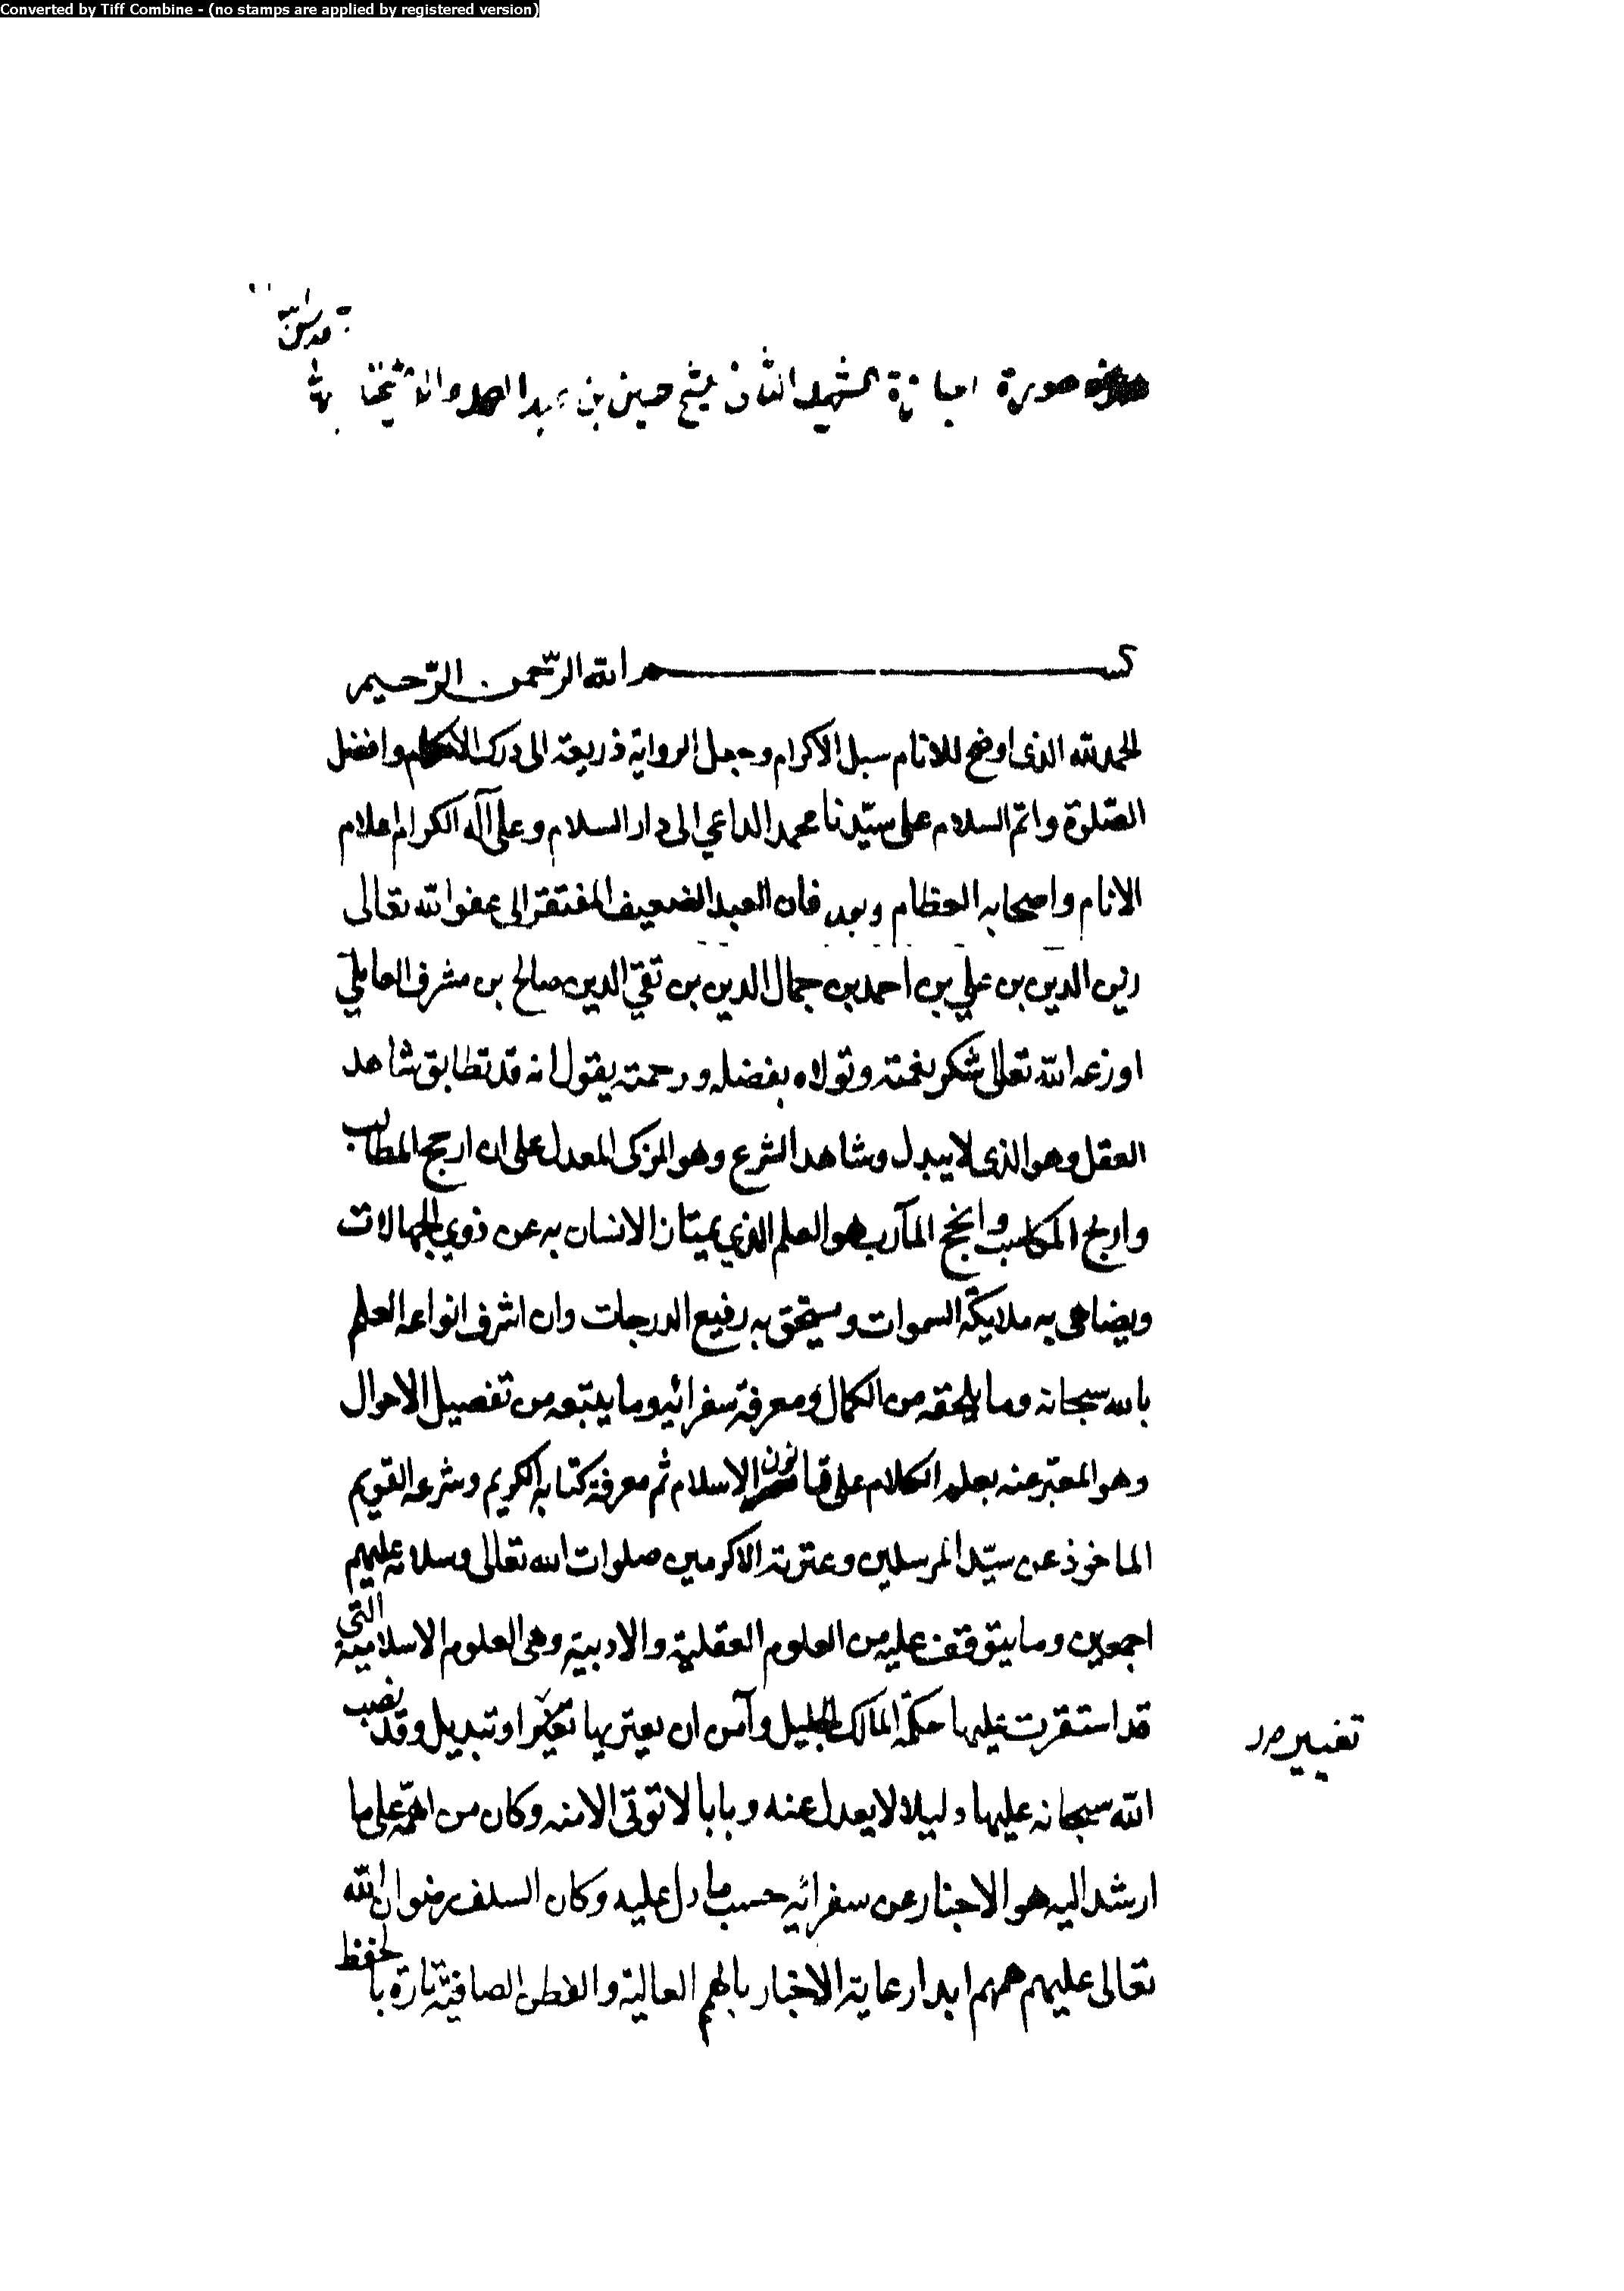 Converted by Tiff Combine - (no stamps are applied by registered version)
صورة اجازة الشهيد الثانى للشيخ حسين بن عبد الصمد والد شيخنا
بسم الله الرّحمن الرّحيم
الحمد لله الذى اوضح للانام سبل الاكرام وجعل الرواية ذريعة الى درك الاحكام وافضل
الصّلوة واتم السلام على سيّدنا محمد الداعي الى دار السلام وعلى آله الكرام اعلام
الانام واصحابه العظام وبعد فان العبد الضعيف المفتقر الى عفو الله تعالى
زين الدين بن علي بن احمد بن جمال الدين بن تقي الدين صالح بن مشرف العاملي
اوزعه الله تعالى شكر نعمته وتولاه بفضله ورحمته يقول انه قد تطابق شاهد
العقل وهو الذى لا يبدل وشاهد الشرع وهو المزكى المعدل على ان ارجح المطالب
واربح المكاسب وانجح المآرب هو العلم الذي يمتاز الانسان به عن ذوي الجهالات
ويضاهى به ملايكة السموات ويستحق به رفيع الدرجات وان اشرف انواعه العلم
بالله سبحانه وما يلحقه من الكمال ومعرفة سفرائه وما يتبعه من تفصيل الاحوال
وهو المعبّر عنه بعلم الكلام على قانون الاسلام ثم معرفة كتابه الكريم وشرعه القويم
الماخوذ عن سيّد المرسلين وعترته الاكرمين صلوات الله تعالى وسلامه عليهم
اجمعين وما يتوقف عليه من العلوم العقلية والادبية وهى العلوم الاسلامية التى
قد استقرت عليها حكمة المالك الجليل وآمن ان يعتريها تغير او تبديل وقد نصب
تغيير
الله سبحانه عليها دليلا لا يعدل عنه وبابا لا تؤتى الا منه وكان من اهمّه على ما
ارشد اليه هو الاخبار عن سفرائه حسب ما دل عليه وكان السلف رضوان الله
تعالى عليهم همهم ابدا رعاية الاخبار بالهمم العالية والفطن الصافية تارة بالحفظ